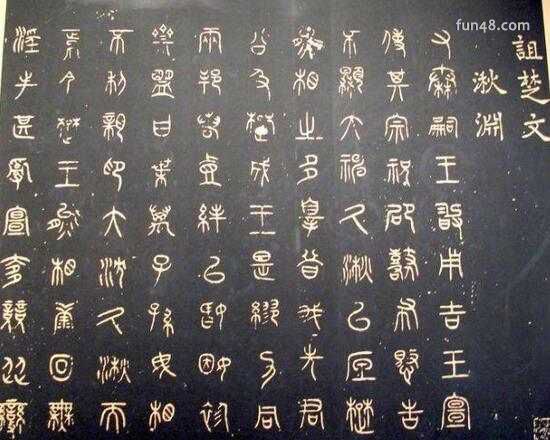 詛楚文
湫淵
又秦嗣王敢用吉玉宣
使其宗祝邵鼛布愍告
不顯大神久湫以底楚
熊相之多辠昔我先君
公及楚成王是繆力同
兩邦若壹絆以婚姻袗
齋盟曰枼萬子孫毋相
不利親卬大沈久湫而
焉今楚王熊相康回無
淫失甚亂宣奓競從變
fun48.com